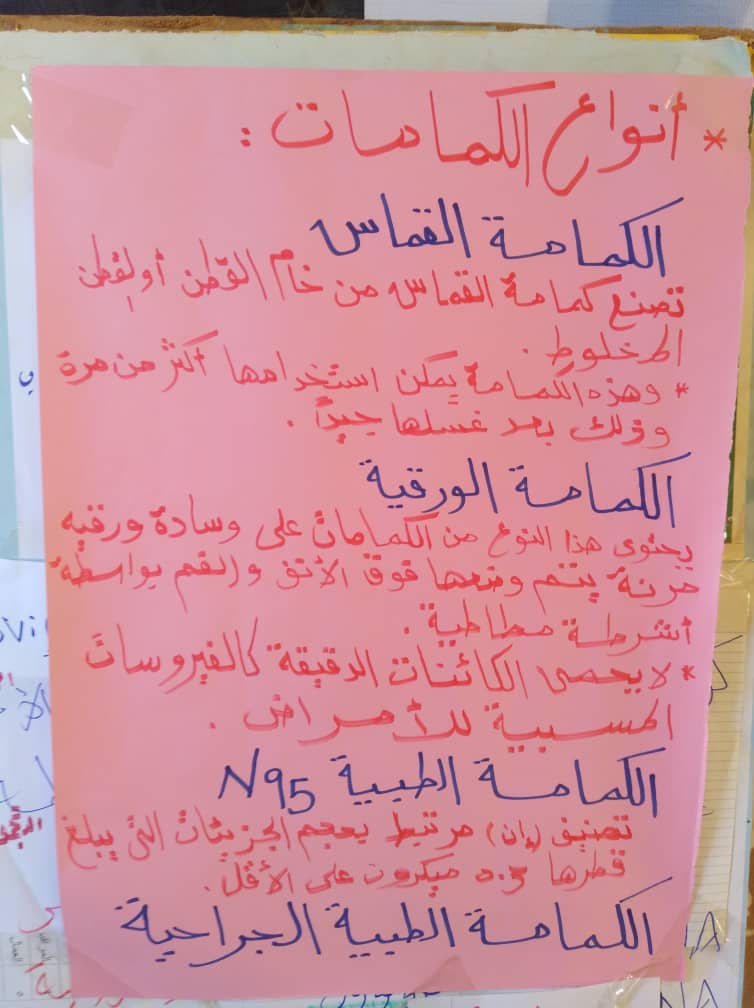 * أنواع الكمامات :
الكمامة القماس
تصنع كمامة القماس من خام القطن أولقطن
المخلوط .
* وهذه الكمامة يمكن استخدامها أكثر من مرة
وذلك بعد غسلها جيداً .
الكمامة الورقية
يحتوى هذا النوع من الكمامات على وسادة ورقيه
مرنة يتم وضعها فوق الأنف والفم بواسطة
أشرطة مطاطية .
* لا يحمى الكائنات الدقيقة كالفيروسات
المسببية للأمراض .
الكمامة الطبية N95
تصنيف (ان) مرتبط بحجم الجزيئات التى يبلغ
قطرها 0.3 ميكرون على الأقل .
الكمامة الطبية الجراحية